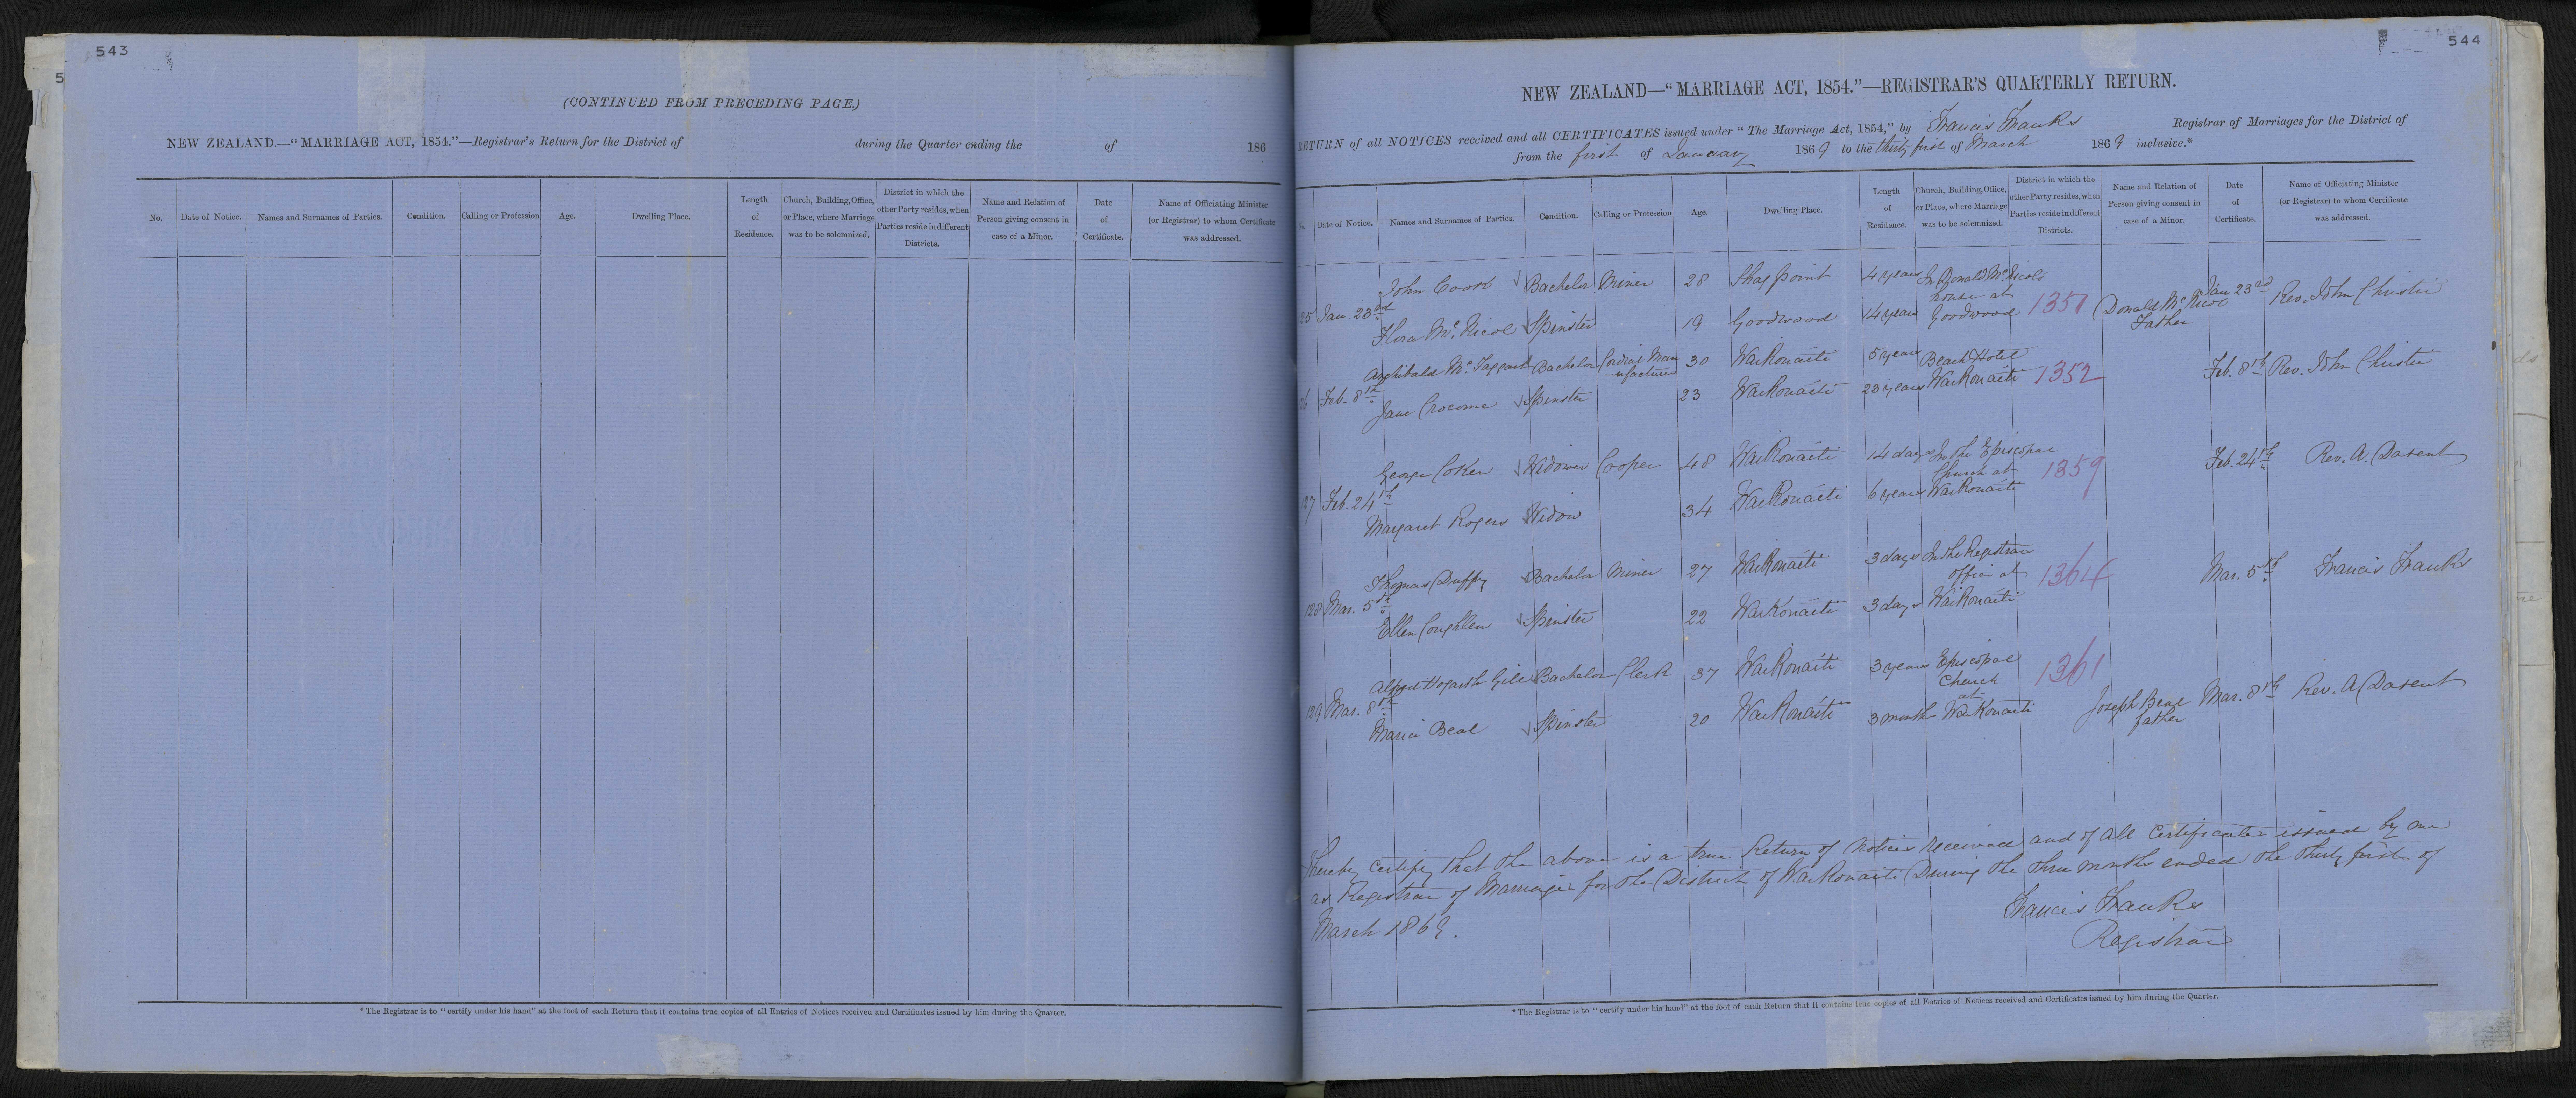 543
5
(CONTINUED FROM PRECEDING PAGE.)
NEW ZEALAND.—"MARRIAGE ACT, 1854."—Registrar's Return for the District of during the Quarter ending the of 186
No. Date of Notice. Names and Surnames of Parties. Condition. Calling or Profession Age. Dwelling Place. Length of Residence. Church, Building, Office, or Place, where Marriage was to be solemnized. District in which the other Party resides, when Parties reside in different Districts. Name and Relation of Person giving consent in case of a Minor. Date of Certificate. Name of Officiating Minister (or Registrar) to whom Certificate was addressed.
* The Registrar is to "certify under his hand" at the foot of each Return that it contains true copies of all Entries of Notices received and Certificates issued by him during the Quarter.
544
NEW ZEALAND—"MARRIAGE ACT, 1854."—REGISTRAR'S QUARTERLY RETURN.
RETURN of all NOTICES received and all CERTIFICATES issued under "The Marriage Act, 1854," by Francis Franks Registrar of Marriages for the District of
from the first of January 1869 to the thirty first of March 1869 inclusive.*
Date of Notice. Names and Surnames of Parties. Condition. Calling or Profession Age. Dwelling Place. Length of Residence. Church, Building, Office, or Place, where Marriage was to be solemnized. District in which the other Party resides, when Parties reside in different Districts. Name and Relation of Person giving consent in case of a Minor. Date of Certificate. Name of Officiating Minister (or Registrar) to whom Certificate was addressed.
John Cook Bachelor Miner 28 Shag point 4 years In Donald McNicols
25 Jan. 23rd house at 1351 Donald McNicol Jan 23rd Rev. John Christie
Flora McNicol Spinster 19 Goodwood 14 years Goodwood Father
Archibald McTaggart Bachelor Cordial Manufacturer 30 Waikouaiti 5 years Beach Hotel
26 Feb. 8th 1352 Feb. 8th Rev. John Christie
Jane Crocome Spinster 23 Waikouaiti 23 years Waikouaiti
George Coker Widower Cooper 48 Waikouaiti 14 days In the Episcopal
27 Feb. 24th Church at 1359 Feb. 24th Rev. A. Dasent
Margaret Rogers Widow 34 Waikouaiti 6 years Waikouaiti
Thomas Duffy Bachelor Miner 27 Waikouaiti 3 days In the Registrar
128 Mar. 5th office at 1364 Mar. 5th Francis Franks
Ellen Coughlen Spinster 22 Waikouaiti 3 days Waikouaiti
Alfred Hogarth Gill Bachelor Clerk 37 Waikouaiti 3 years Episcopal
129 Mar. 8th Church at 1361 Joseph Beal father Mar. 8th Rev. A Dasent
Maria Beal Spinster 20 Waikouaiti 3 months Waikouaiti
I hereby certify that the above is a true Return of notices received and of all certificates issued by me
as Registrar of Marriages for the District of Waikouaiti During the three months ended the thirty first of
March 1869.
Francis Franks
Registrar
* The Registrar is to "certify under his hand" at the foot of each Return that it contains true copies of all Entries of Notices received and Certificates issued by him during the Quarter.